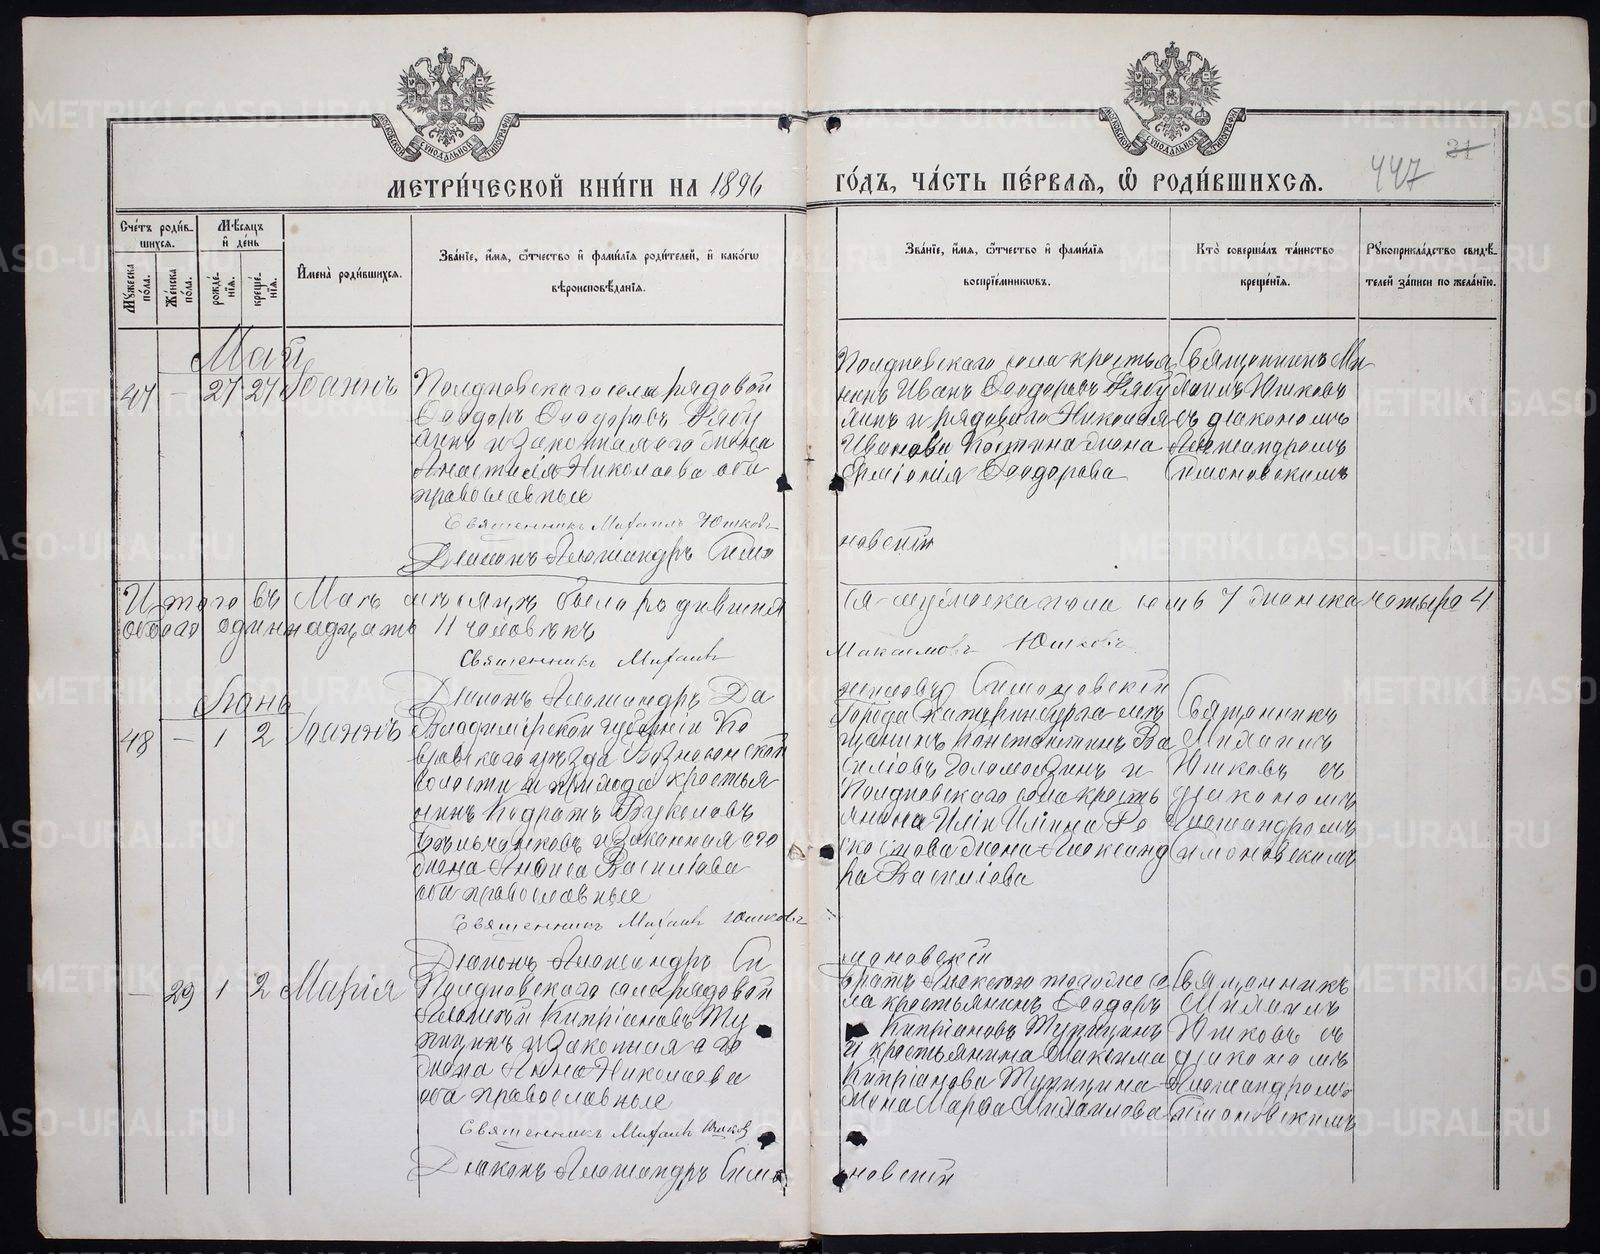 МОСКОВСКОЙ СѴНОДАЛЬНОЙ ТИПОГРАФІИ
МОСКОВСКОЙ СѴНОДАЛЬНОЙ ТИПОГРАФІИ
МЕТРИ́ЧЕСКОЙ КНИ́ГИ НА 1896
ГО́ДЪ, ЧА́СТЬ ПЕ́РВАѦ, Ѡ РОДИ́ВШИХСѦ.
447 21
Сче́тъ роди́в-
шихсѧ.
Мѣ́сѧцъ
и де́нь
Мꙋ́жеска по́ла.
Же́нска по́ла.
рожде́-
нїѧ.
креще́-
нїѧ.
Имена̀ роди́вшихсѧ.
Зва́нїе, и́мѧ, ѻ́тчество и фами́лїѧ роди́телей, и како́гѡ
вѣроисповѣ́данїѧ.
Зва́нїе, и́мѧ, ѻ́тчество и фами́лїѧ
воспрїе́мникѡвъ.
Кто̀ соверша́лъ та́инство
креще́нїѧ.
Рꙋкоприкла́дство свидѣ́-
телей за́писи по жела́нїю.
Май
47 – 27 27 Іоаннъ
Полдневскаго села рядовой
Ѳеодоръ Ѳеодоровъ Рябу
хинъ и законная его жена
Анастасія Николаева оба
православные
Священникъ Михаилъ Юшковъ
Діаконъ Александръ Симо
Полдневскаго села крестья
нинъ Иванъ Ѳеодоровъ Рябу
хинъ и рядоваго Николая
Иванова жена
Ѳеодорова
новскій
Священникъ Ми
хаилъ Юшковъ
съ діакономъ
Александромъ
Симоновскимъ
Итого въ Маѣ мѣсяцѣ было родивших
обоего одиннадцать 11 человѣкъ
ся – мужеска пола семь 7 женска четыре 4
Священникъ Михаилъ
Максимовъ Юшковъ
Діаконъ Александръ Да
ниловъ Симоновскій
Іюнь
48 – 1 2 Іоаннъ
Владимірской губерніи Ко
вровскаго уѣзда Вознесенской
волости и прихода крестья
нинъ Кодратъ Вуколовъ
и законная его
жена Анфиса Васильева
оба православные
Священникъ Михаилъ Юшковъ
Діаконъ Александръ Си
Города Екатеринбурга мѣ
щанинъ Константинъ Ва
силіевъ и
Полдневскаго села кресть
янина Иліи Иліина
жена Александ
ра Василіева
моновскій
Священникъ
Михаилъ
Юшковъ съ
діакономъ
Александромъ
Симоновскимъ
– 29 1 2 Марія
Полдневскаго села рядовой
Алексѣй Кипріановъ Ту
пицинъ и законная его
жена Анна Николаева
оба православные
Священникъ Михаилъ Юшковъ
Діаконъ Александръ Симо
братъ Алексѣю того же се
ла крестьянинъ Ѳеодоръ
Кипріановъ Тупицинъ
и крестьянина Максима
Кипріанова Тупицина
жена Марѳа Михаилова
новскій
Священникъ
Михаилъ
Юшковъ съ
діакономъ
Александромъ
Симоновскимъ
METRIKI.GASO-URAL.RU